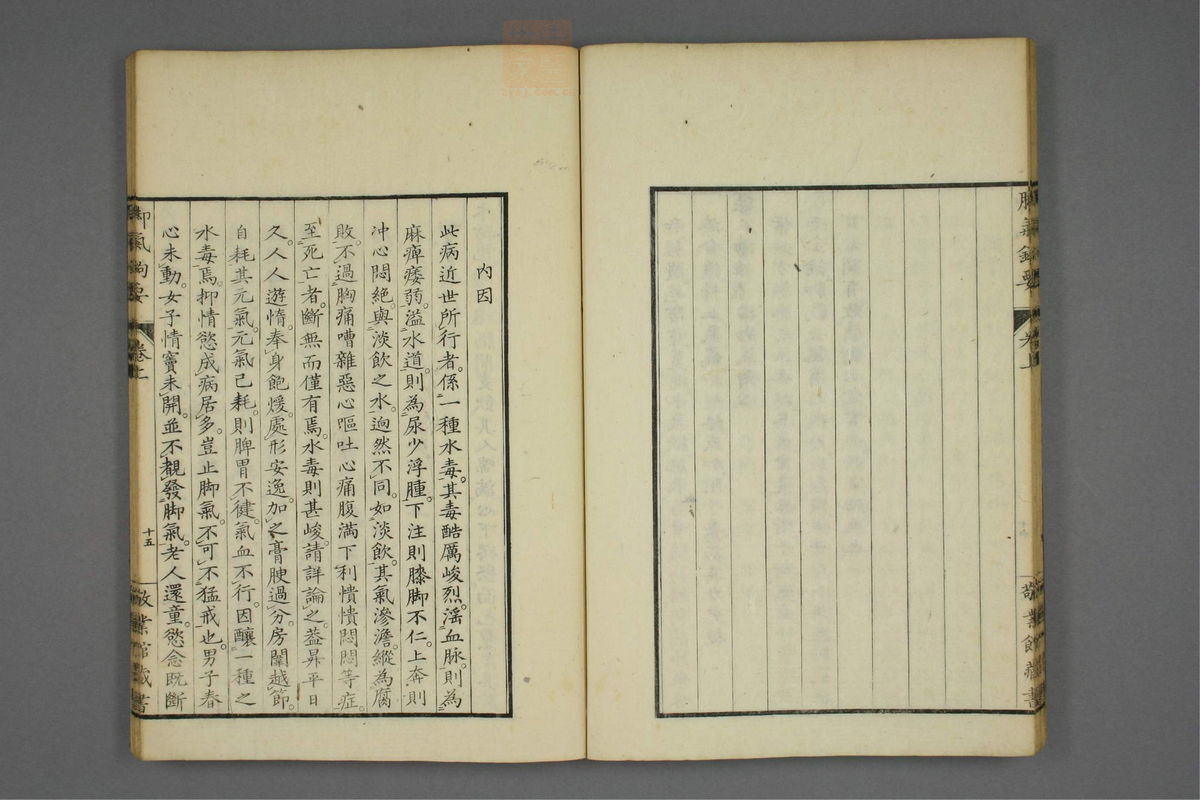 脚氣鈎要
卷上
敬業館藏書
內因
此病近世所行者。係一種水毒。其毒酷厲峻烈。淫血脉。則為
麻痺痿弱。溢水道。則為尿少浮腫。下注則膝脚不仁。上奔則
冲心悶絕。與淡飲之水。逈然不同。如淡飲。其氣滲澹。縱為腐
敗。不過胸痛嘈雜惡心嘔吐心痛腹滿下利憒憒悶悶等症。
至死亡者。斷無而僅有焉。水毒則甚峻。請詳論之。蓋昇平日
久。人人遊惰。奉身飽煖。處形安逸。加之膏腴過分。房闈越節。
自耗其元氣。元氣已耗。則脾胃不健。氣血不行。因釀一種之
水毒焉。抑情慾成病居多。豈止脚氣。不可不猛戒也。男子春
心未動。女子情竇未開。並不覩發脚氣。老人還童。慾念既斷
脚氣鈎要
卷上
十五
敬業館藏書